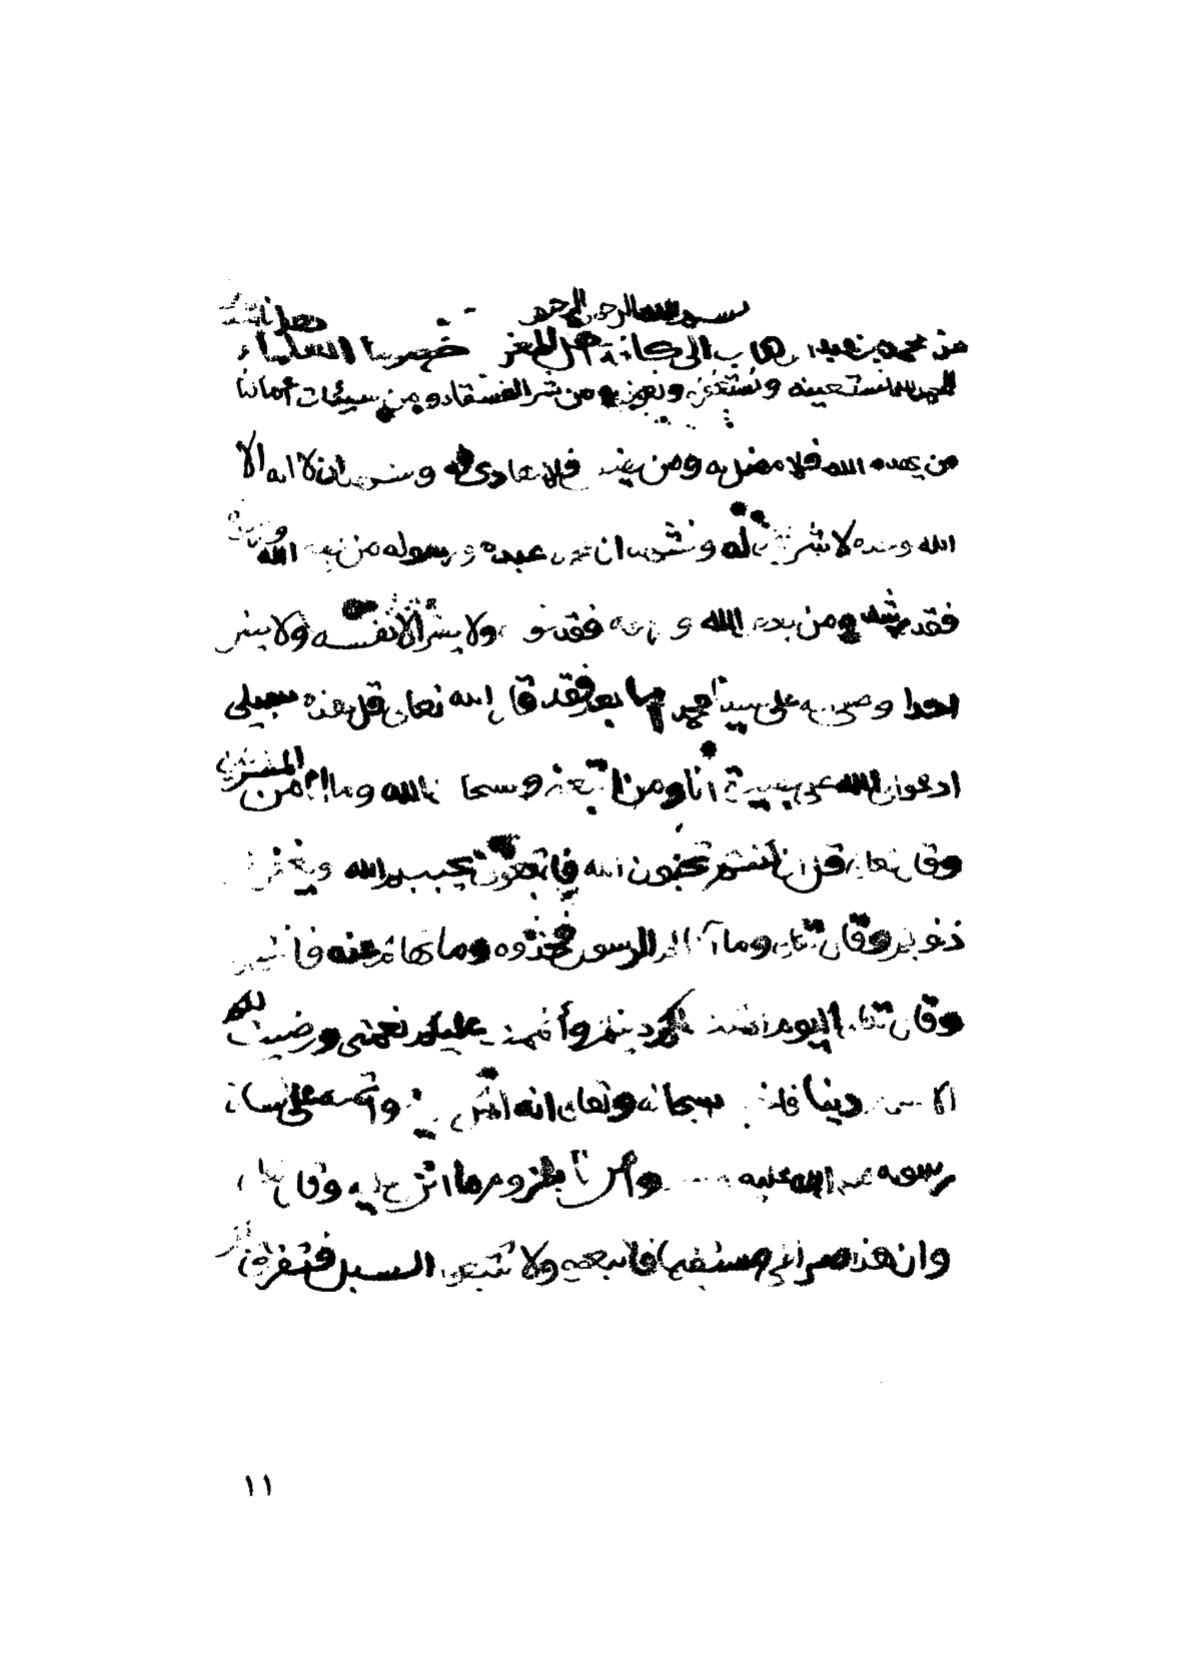 بسم الله الرحمن الرحيم
من محمد بن عبد الوهاب الى كافة اهل المغرب خصوصا العلماء
الحمد لله نستعينه ونستغفره ونعوذ به من شر انفسنا ومن سيئات أعمالنا
من يهده الله فلا مضل له ومن يضلل فلا هادي له ونشهد ان لا اله الا
الله وحده لا شريك له ونشهد ان محمد عبده ورسوله من يطع الله ورسوله
فقد رشد ومن يعص الله ورسوله فقد غوى ولا يضر الا نفسه ولا يضر
الله احدا وصلى الله على سيدنا محمد اما بعد فقد قال الله تعالى قل هذه سبيلي
ادعوا الى الله على بصيرة أنا ومن اتبعني وسبحان الله وما انا من المشركين
وقال تعالى قل ان كنتم تحبون الله فاتبعوني يحببكم الله ويغفر لكم
ذنوبكم وقال تعالى وما آتاكم الرسول فخذوه وما نهاكم عنه فانتهوا
وقال تعالى اليوم اكملت لكم دينكم وأتممت عليكم نعمتي ورضيت لكم
الاسلام دينا فاخبر سبحانه وتعالى انه اكمل الدين واتمه على لسان
رسوله صلى الله عليه وسلم وأمرنا بلزوم ما انزل اليه وقال تعالى
وان هذا صراطي مستقيما فاتبعوه ولا تتبعوا السبل فتفرق
١١